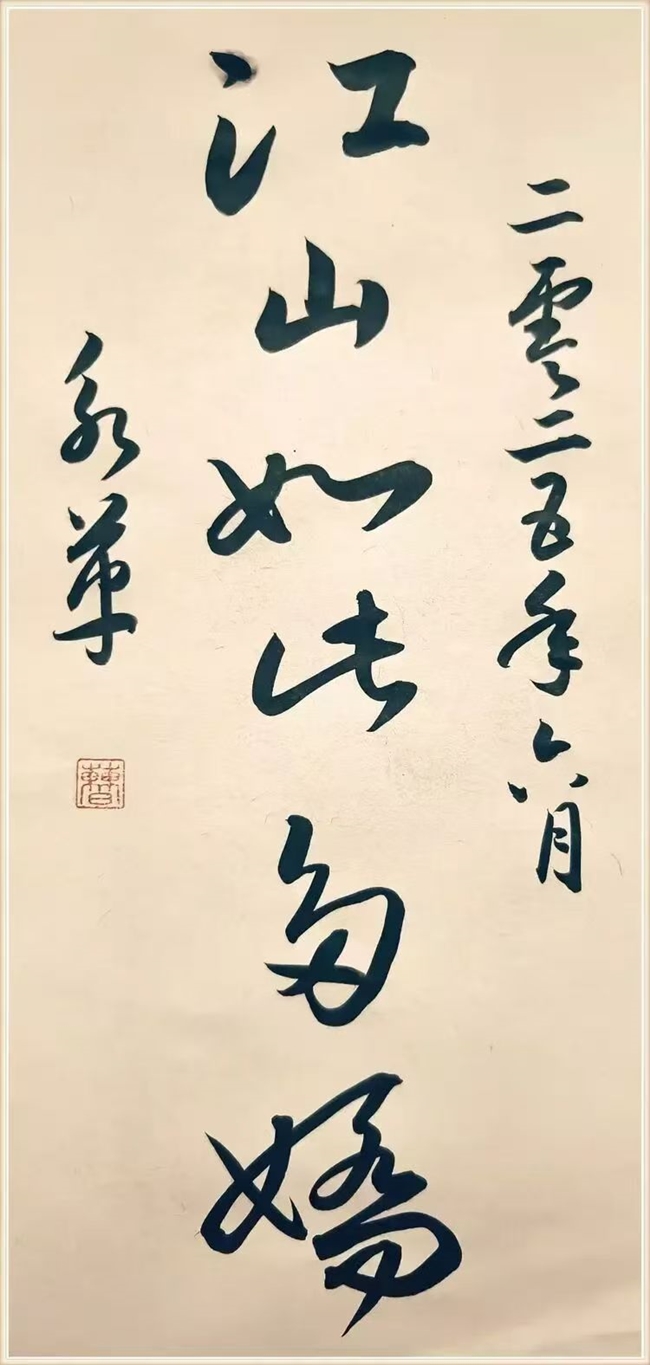 二零二五年六月
江山如此多嬌
永革